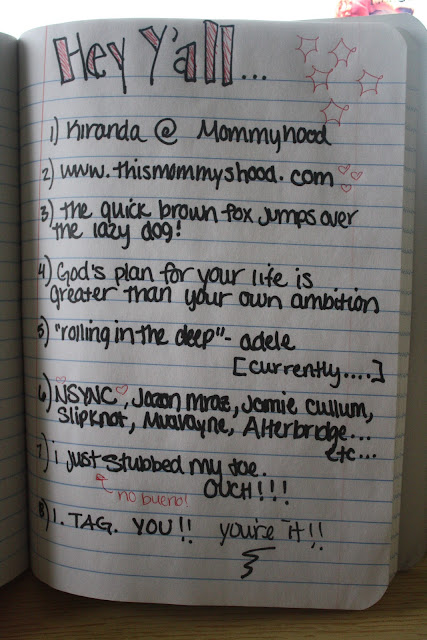 Hey Y'all...
1) Kiranda @ Mommyhood
2) www.thismommyshood.com
3) the quick brown fox jumps over
the lazy dog!
4) God's plan for your life is
greater than your own ambition
5) "rolling in the deep" - adele
[currently....]
6) NSYNC, Jason mraz, Jamie cullum,
Slipknot, Mudvayne, Alterbridge...
etc...
7) i just stubbed my toe.
no bueno! OUCH!!!
8) 1. TAG. YOU!! you're it!!